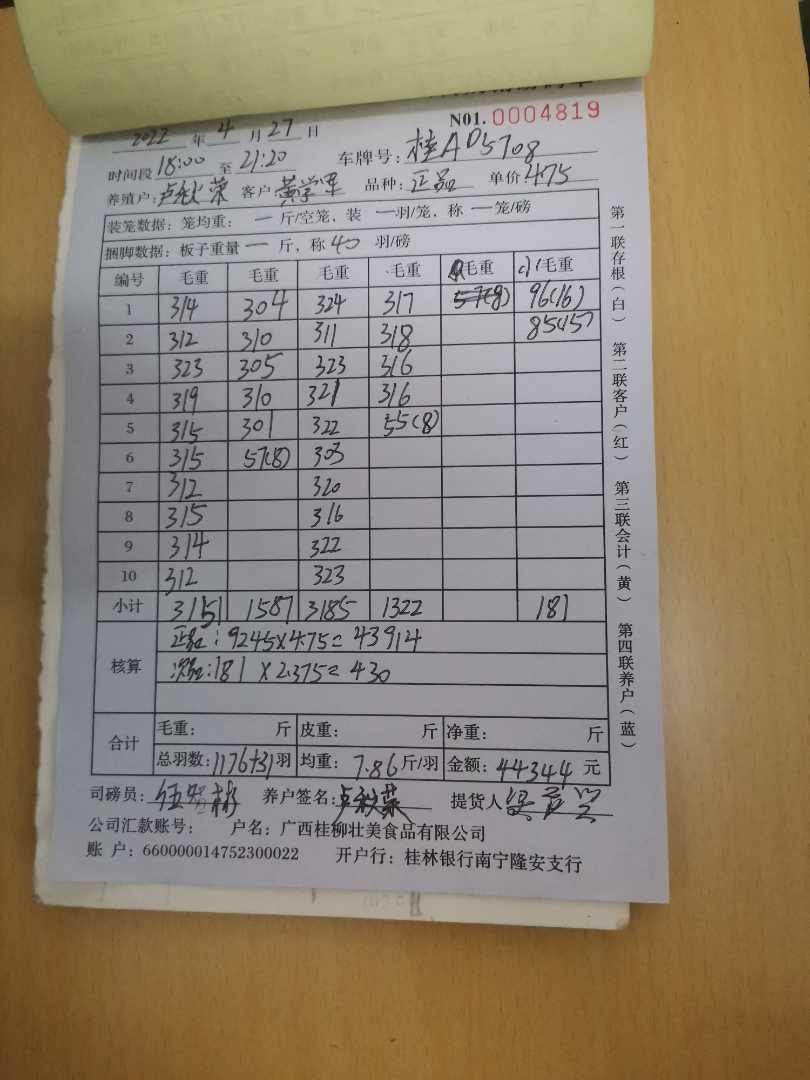 N01.0004819
2022 年 4 月 27 日
时间段 18:00 至 21:20 车牌号: 桂AD5708
养殖户: 卢秋荣 客户 黄学军 品种: 正品 单价: 4.75
装笼数据: 笼均重: 一 斤/空笼, 装 一 羽/笼, 称 一 笼/磅
捆脚数据: 板子重量 一 斤, 称 40 羽/磅
编号 毛重 毛重 毛重 毛重 毛重 小毛重
1 314 304 324 317 57(8) 96(16)
2 312 310 311 318 85(15)
3 323 305 323 316
4 319 310 321 316
5 315 301 322 55(8)
6 315 57(8) 303
7 312 320
8 315 316
9 314 322
10 312 323
小计 3151 1587 3185 1322 181
核算 正品: 9245×4.75=43914
次品: 181×2.375=430
合计 毛重: 斤 皮重: 斤 净重: 斤
总羽数: 1176+31 羽 均重: 7.86 斤/羽 金额: 44344 元
司磅员: 养户签名: 卢秋荣 提货人
公司汇款账号: 户名: 广西桂柳壮美食品有限公司
账 户: 660000014752300022 开户行: 桂林银行南宁隆安支行
第一联存根(白) 第二联客户(红) 第三联会计(黄) 第四联养户(蓝)